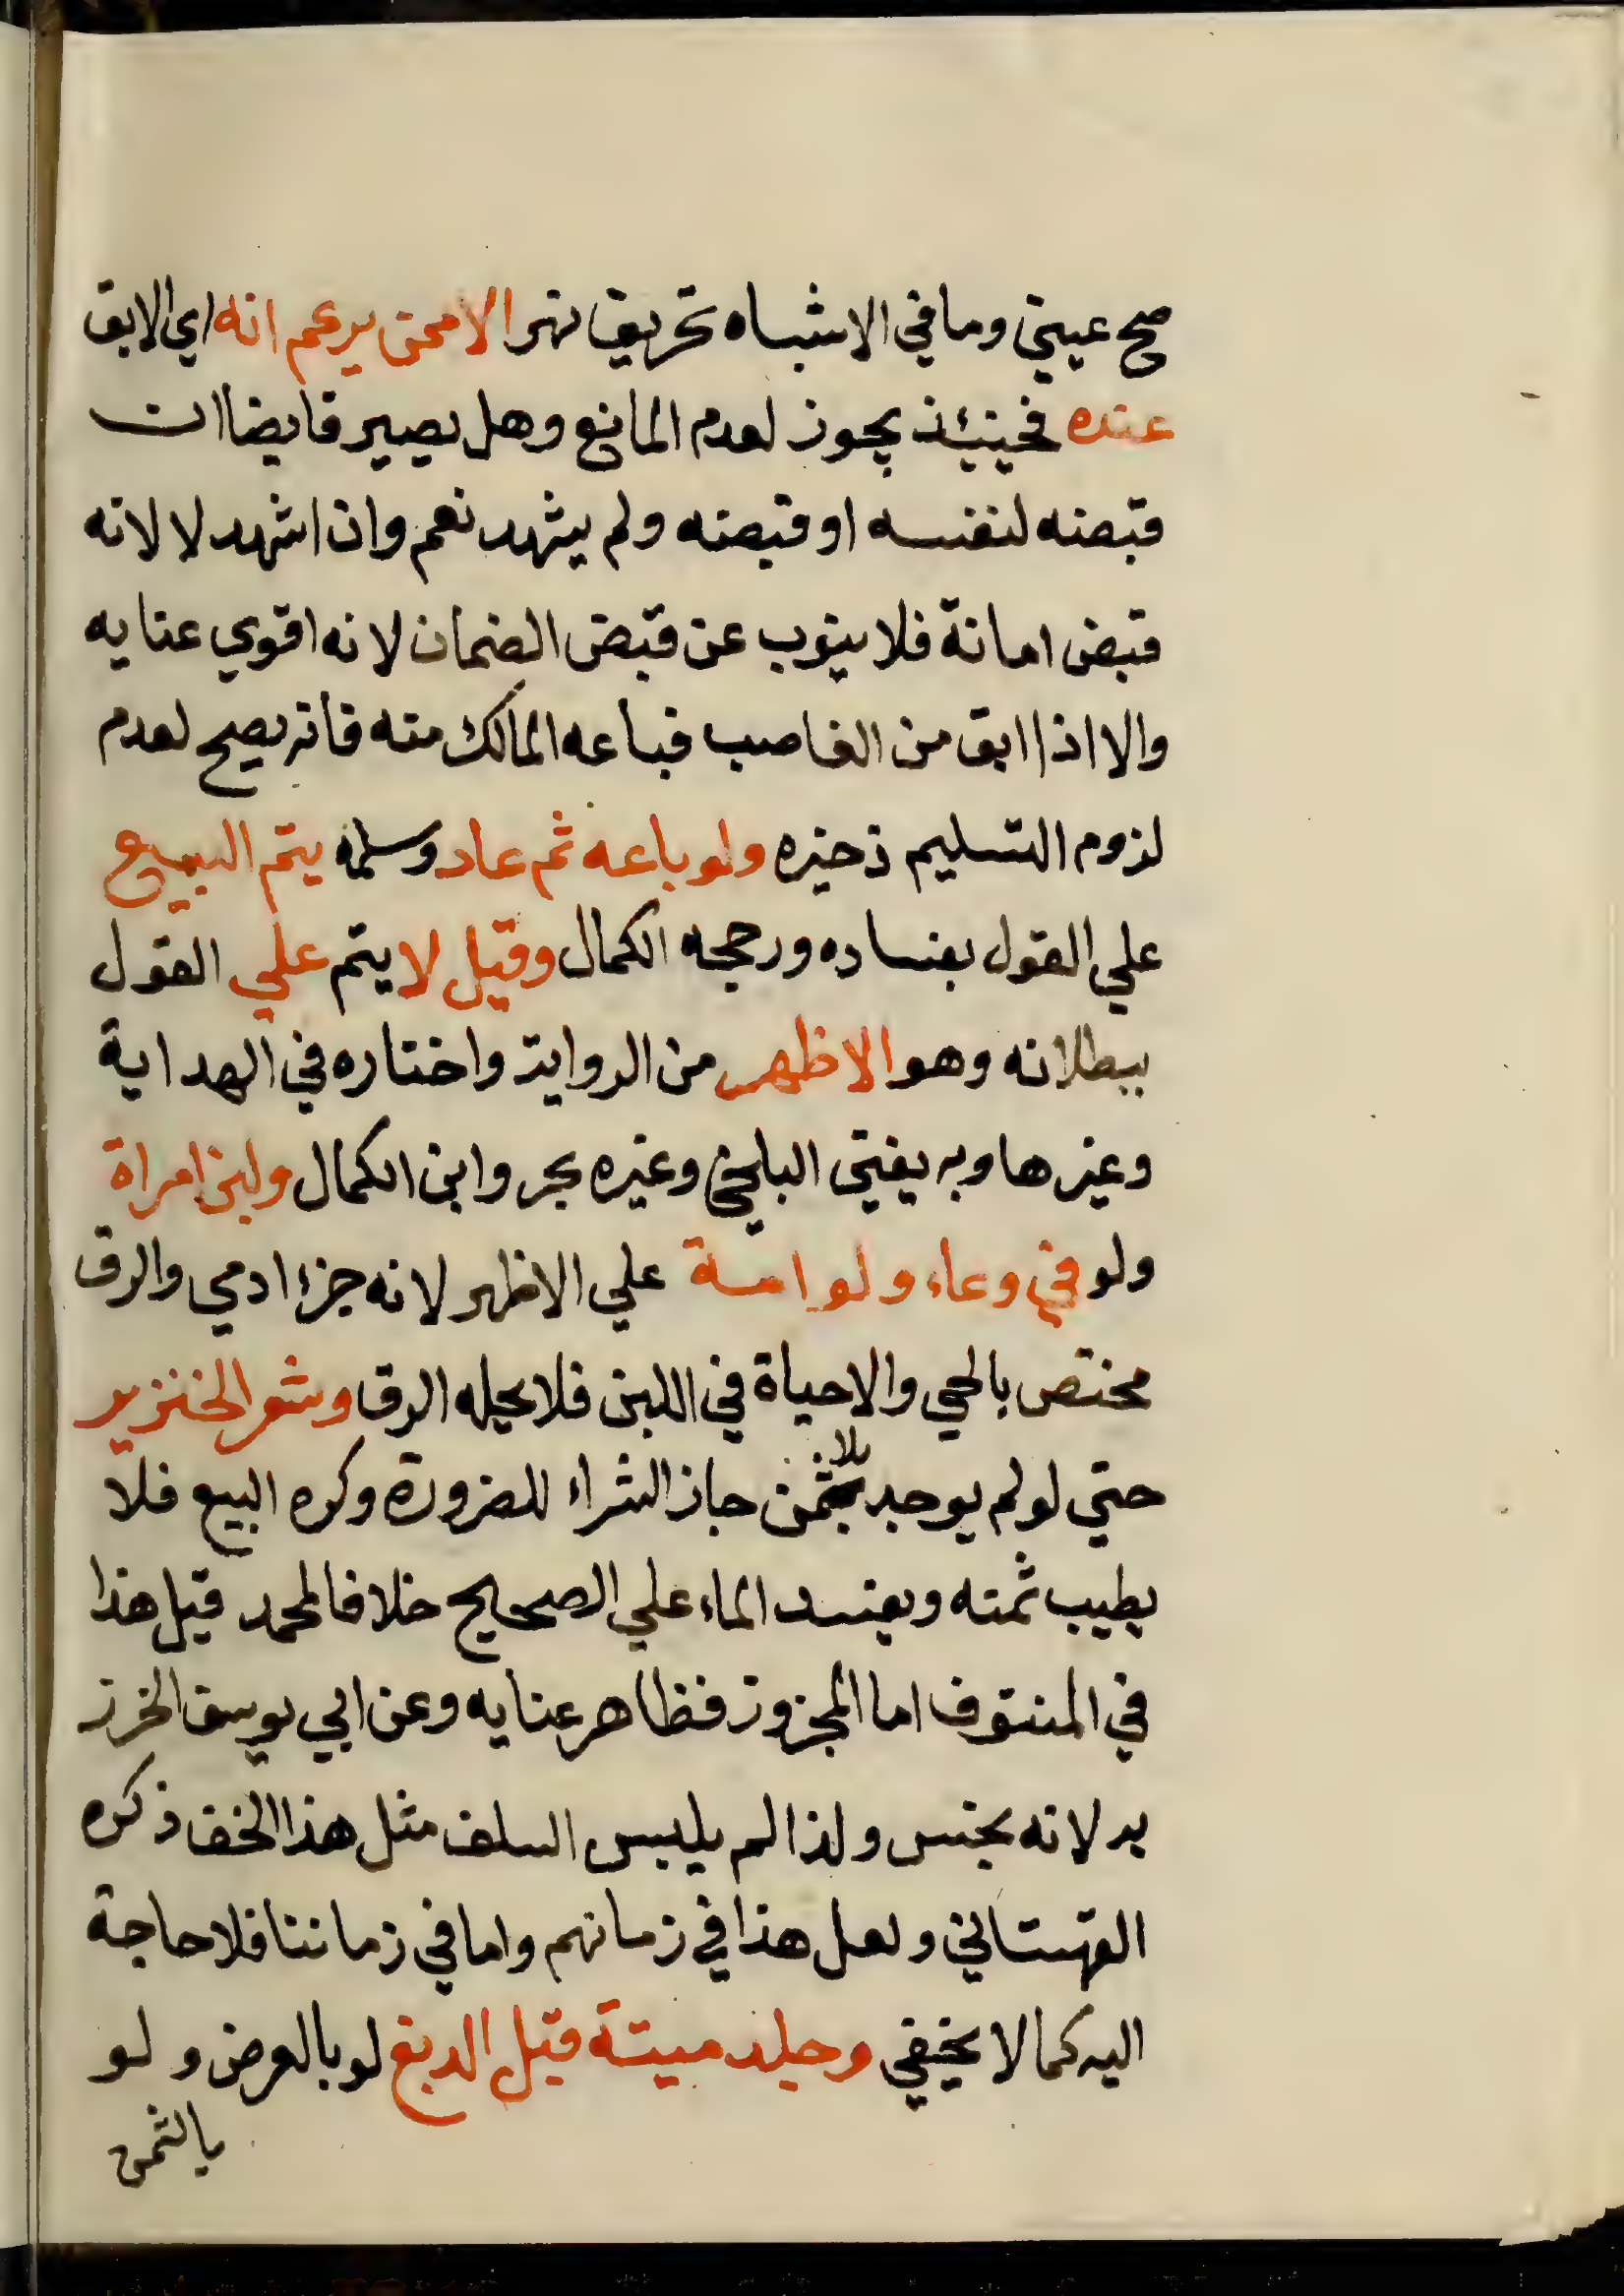 صح عيني وما في الاشباه تحريف نهر الا ممن يزعم انه اي الابق
عنده فحينئذ يجوز لعدم المانع وهل يصير قابضا ان
قبضه لنفسه او قبضه ولم يشهد نعم وان اشهد لا لانه
قبض امانة فلا ينوب عن قبض الضمان لانه اقوي عنايه
والا اذا ابق من الغاصب فباعه المالك منه فانه يصح لعدم
لزوم التسليم ذخيره ولو باعه ثم عاد وسلمه يتم البيع
علي القول بفساده ورجحه الكمال وقيل لا يتم علي القول
ببطلانه وهو الاظهر من الرواية واختاره في الهداية
وغيرها وبه يفتي البلخي وغيره بحر وابن الكمال ولبن امراة
ولو في وعاء ولو امة علي الاظهر لانه جزء ادمي والرق
مختص بالحي والاحياة في اللبن فلا يحله الرق وشعر الخنزير
حتي لو لم يوجد بلا ثمن جاز الشراء للضرورة وكره البيع فلا
يطيب ثمنه ويفسد الماء علي الصحيح خلافا لمحمد قيل هذا
في المنتوف اما المجزوز فظاهر عنايه وعن ابي يوسف الخرز
به لانه نجس ولذا لم يلبس السلف مثل هذا الخف ذكره
القهستاني ولعل هذا في زمانهم واما في زماننا فلا حاجة
اليه كما لا يخفي وجلد ميتة قبل الدبغ لو بالعرض ولو
بالثمن